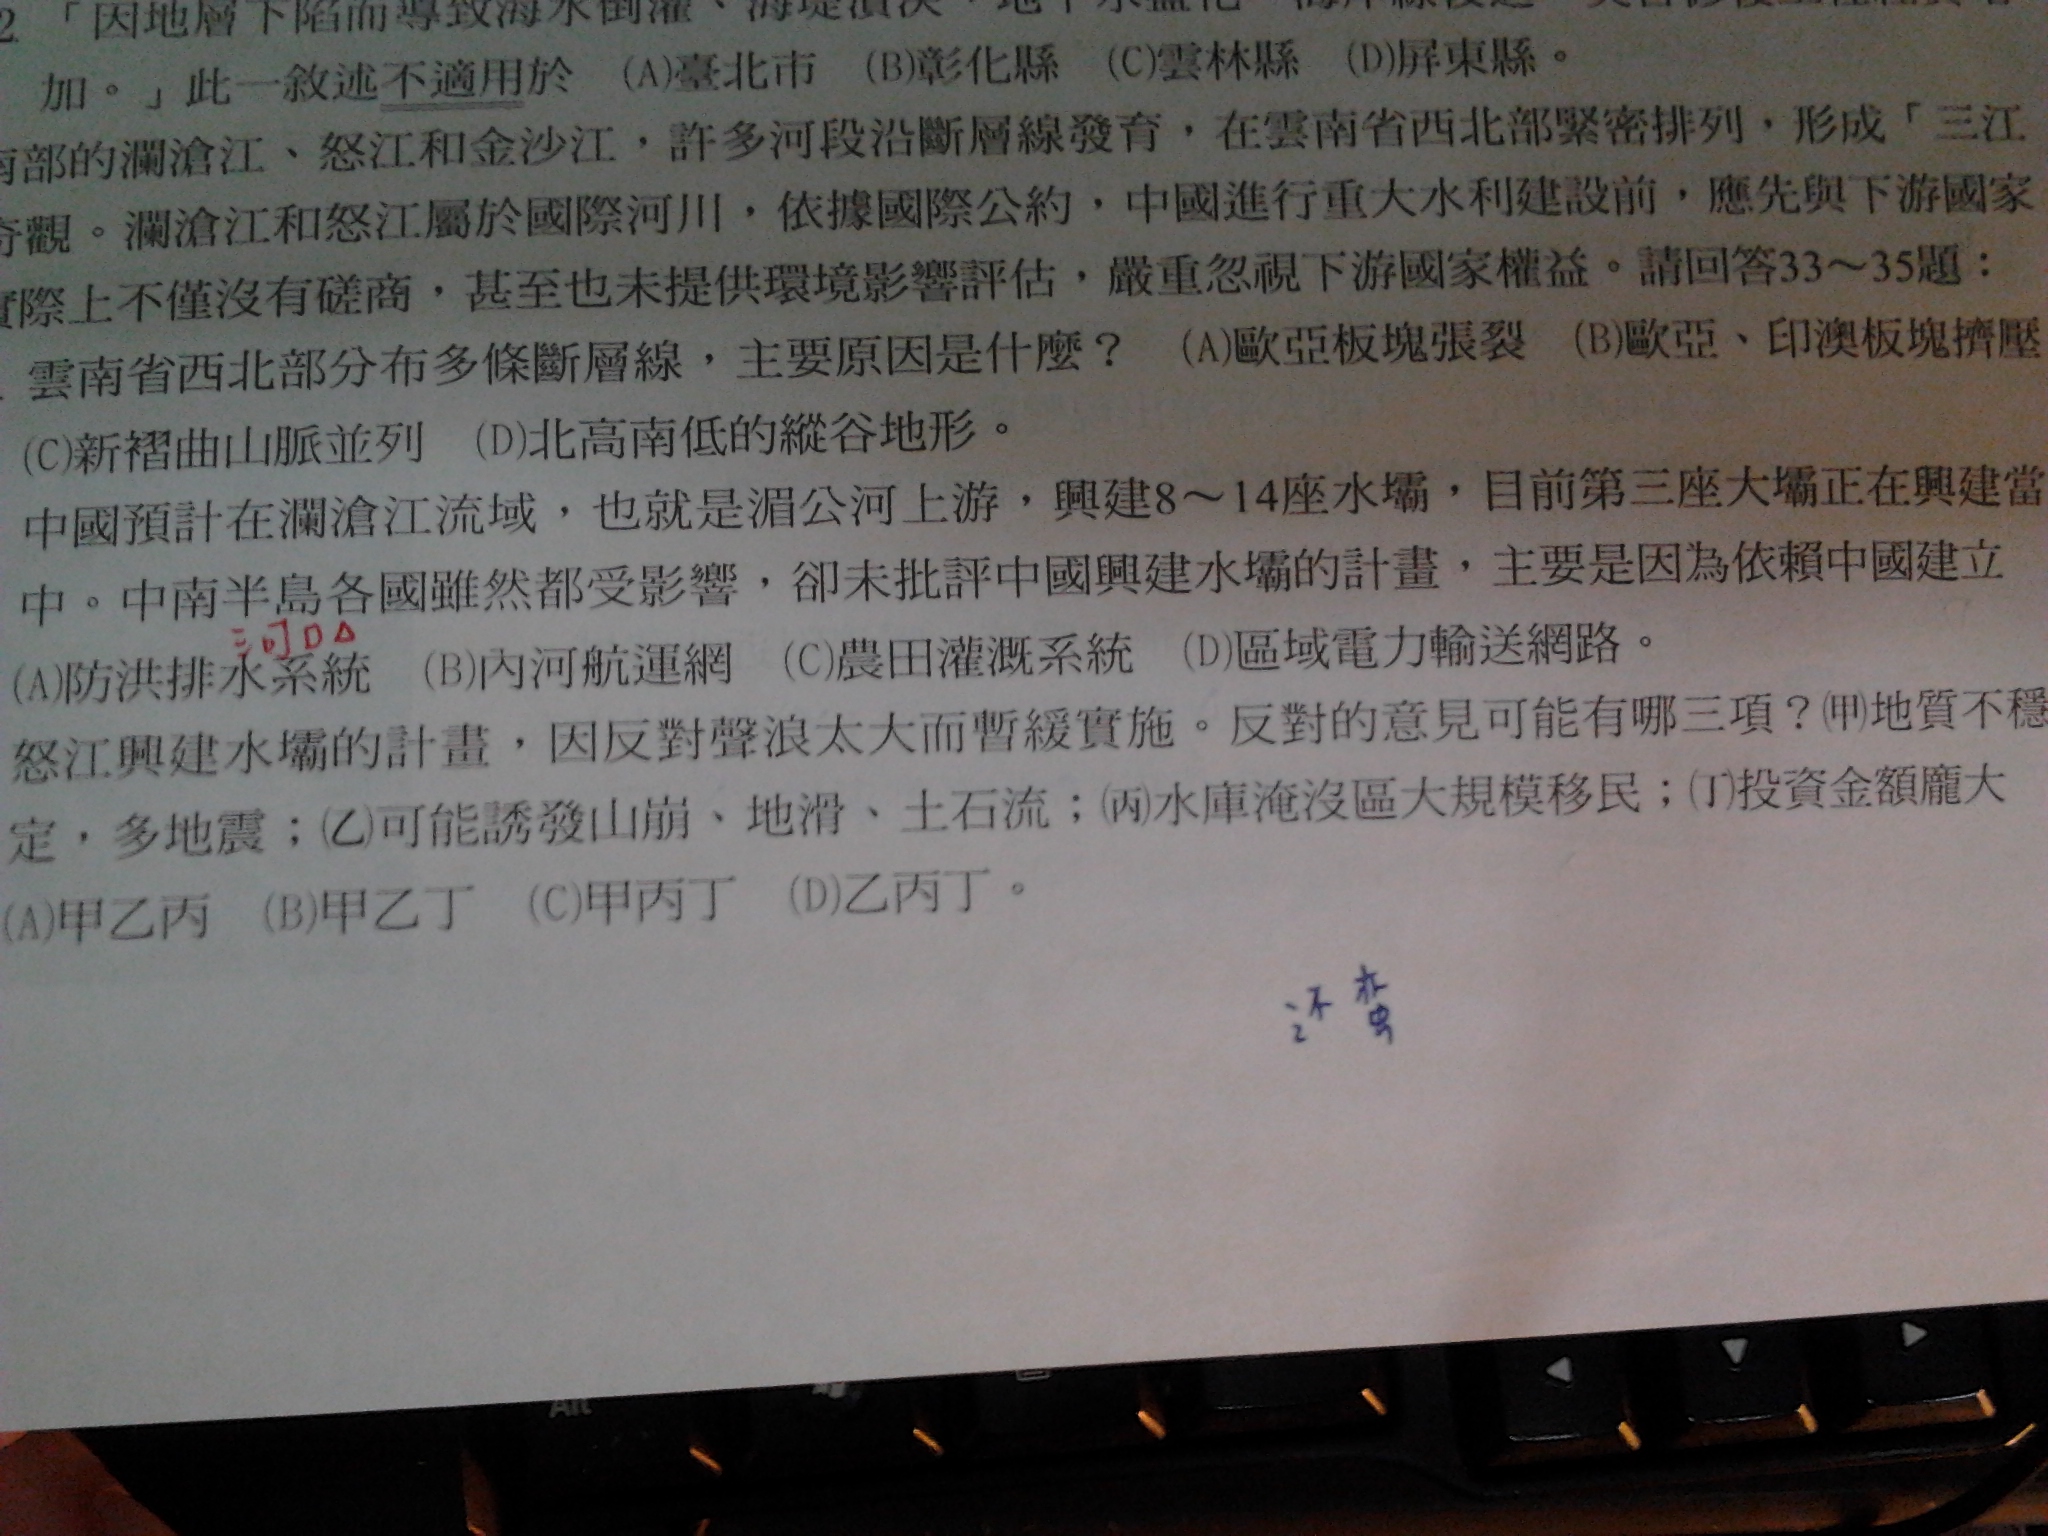 2 「因地層下陷而導致海水倒灌、海堤潰決、地下水鹽化、海岸線後退、災害
加。」此一敘述不適用於 (A)臺北市 (B)彰化縣 (C)雲林縣 (D)屏東縣。
南部的瀾滄江、怒江和金沙江，許多河段沿斷層線發育，在雲南省西北部緊密排列，形成「三江
奇觀。瀾滄江和怒江屬於國際河川，依據國際公約，中國進行重大水利建設前，應先與下游國家
實際上不僅沒有磋商，甚至也未提供環境影響評估，嚴重忽視下游國家權益。請回答33～35題：
雲南省西北部分布多條斷層線，主要原因是什麼？ (A)歐亞板塊張裂 (B)歐亞、印澳板塊擠壓
(C)新褶曲山脈並列 (D)北高南低的縱谷地形。
中國預計在瀾滄江流域，也就是湄公河上游，興建8～14座水壩，目前第三座大壩正在興建當
中。中南半島各國雖然都受影響，卻未批評中國興建水壩的計畫，主要是因為依賴中國建立
三河口△
(A)防洪排水系統 (B)內河航運網 (C)農田灌溉系統 (D)區域電力輸送網路。
怒江興建水壩的計畫，因反對聲浪太大而暫緩實施。反對的意見可能有哪三項？(甲)地質不穩
定，多地震；(乙)可能誘發山崩、地滑、土石流；(丙)水庫淹沒區大規模移民；(丁)投資金額龐大
(A)甲乙丙 (B)甲乙丁 (C)甲丙丁 (D)乙丙丁。
还蛮
Alt